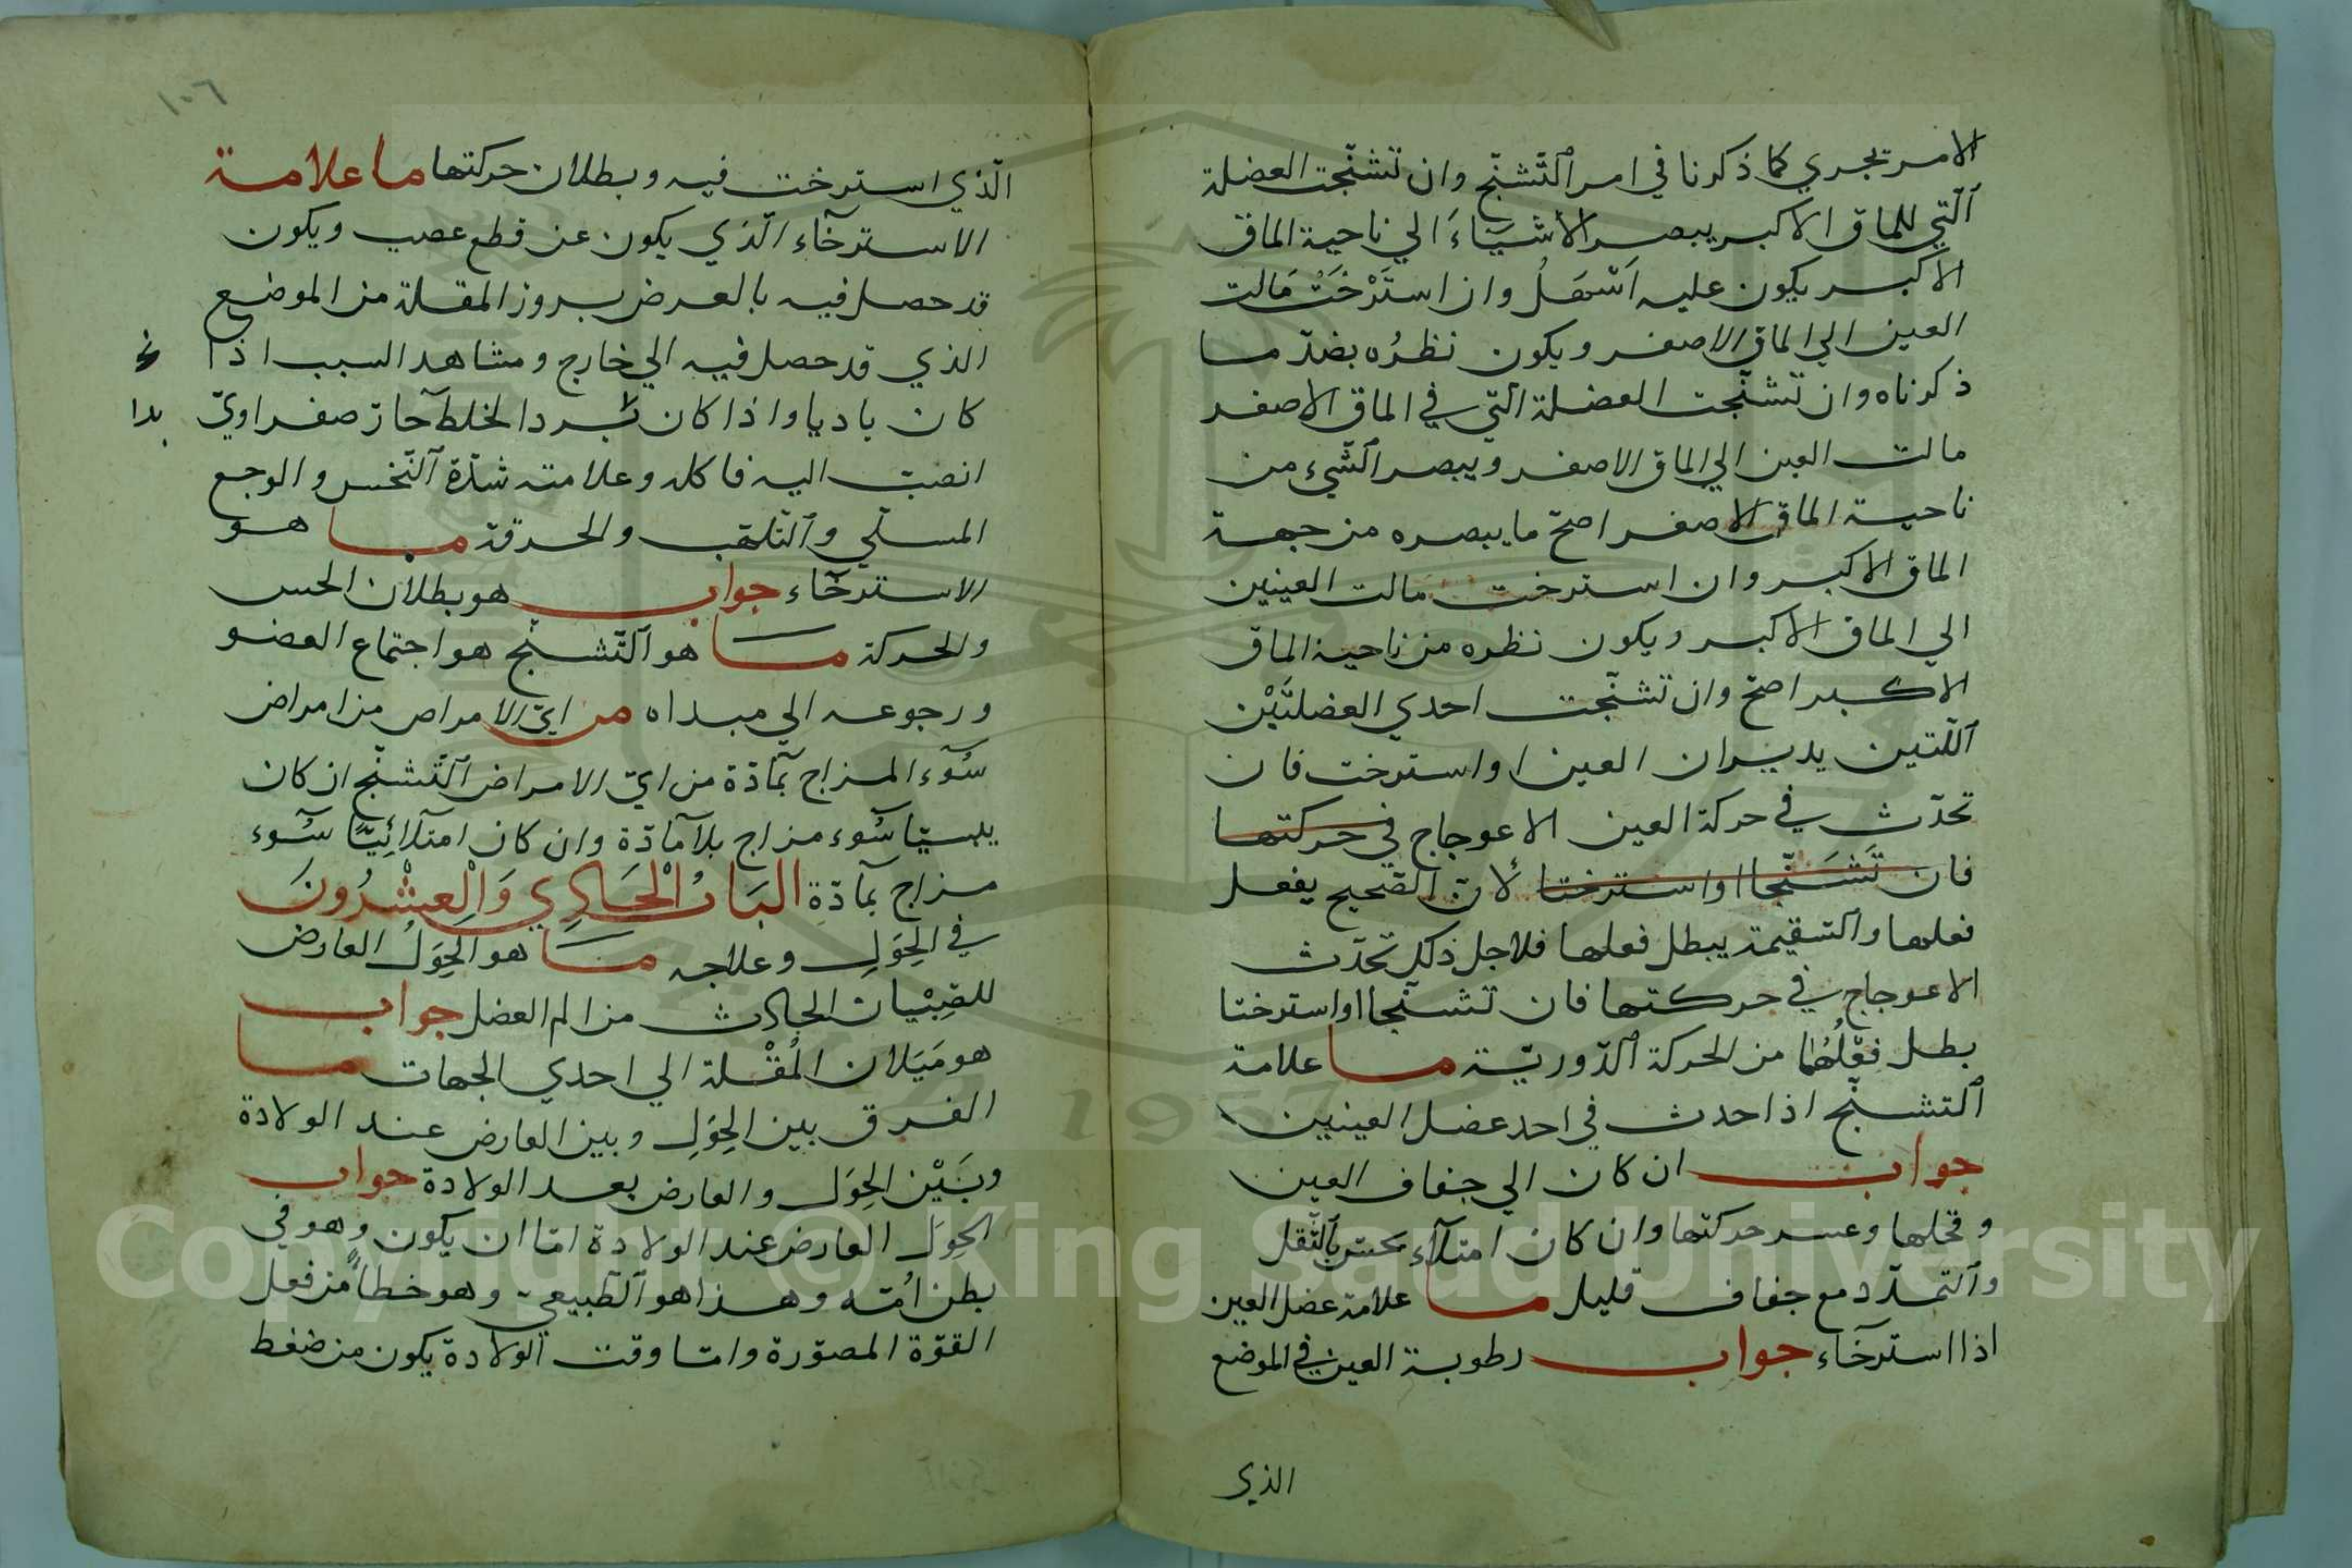 الامر تجري كما ذكرنا في امر ٱلتّشنّج وان تشنّجت العضلة
ٱلّتي للماق الاكبر يبصر الأشيَآءَ الي ناحية الماق
الاكبر يكون عليه اَسْهَلُ وان استَرْخَتْ مَالت
العين الي الماق الاصغر ويكون نظرُه بضدّ ما
ذكرناه وان تشنّجت العضلة الّتي في الماق الاصغر
مالت العين الي الماق الاصغر ويبصر ٱلشّيء من
ناحية الماق الاصغر اصحّ ما يبصره من جهة
الماق الاكبر وان استرخت مالت العينين
الي الماق الاكبر ويكون نظره من ناحية الماق
الاكبر اصحّ وان تشنّجت احدي العضلتَيْن
ٱللّتين يديران العين او استرخت فان
تحدّث في حركة العين الاعوجاج في حركتها
فان تَشَنّجا او استرختا لأنّ الصّحيح يفعل
فعلها والسّقيمة يبطل فعلها فلاجل ذلك تحدّث
الاعوجاج في حركتها فان تشنّجا او استرختا
بطل فعْلُهُما من الحركة ٱلدّوريّة ما علامة
ٱلتشنّج اذا حدث في احد عضل العينين
جواب ان كان الي جفاف العين
وقحلها وعسر حركتها وان كان امتلآء يحسّ بالثّقل
وٱلتمدّد مع جفاف قليل ما علامة عضل العين
اذا استرخآء جواب رطوبة العين في الموضع
الذي
١٠٦
الّذي استرخت فيه وبطلان حركتها ما علامة
الاسترخآء الّذي يكون عن قطع عصب ويكون
قد حصل فيه بالعرض بروز المقلة من الموضع
الذي قد حصل فيه الي خارج ومشاهد السبب اذا
كان باديا واذا كان لخلط حارّ صفراويّ
بدا
انصبّ اليه فاكله وعلامته شدّة ٱلنّخس والوجع
المسلّي وٱلتّلهّب والحرقة ما هو
الاسترخآء جواب هو بطلان الحس
والحركة ما هو ٱلتّشنّج هو اجتماع العضو
ورجوعه الي مبداه من ايّ الامراض من امراض
سُوٓء المزاج بمآدّة من ايّ الامراض ٱلتّشنّج ان كان
يبسيّا سُوٓء مزاج بلا مآدّة وان كان امتلآئِيّا سُوٓء
مزاج بمآدّة البَابُ الْحَادِي وَالْعِشْرُونَ
في الحِوَلِ وعلاجه ما هو الحِوَلُ العارض
للصِّبْيان الحادث من الم العضل جواب
هو مَيَلان المُقْلة الي احدي الجهات ما
الفرق بين الحِوَلِ وبين العارض عند الولادة
وبَيْن الحِوَل والعارض بعد الولادة جواب
الحِوَل العارض عند الولادة امّا ان يكون وهو في
بطن اُمّه وهذا هو ٱلطّبيعيّ وهو خطأً من فعل
القوّة المصوّرة وامّا وقت الولادة يكون من ضغط